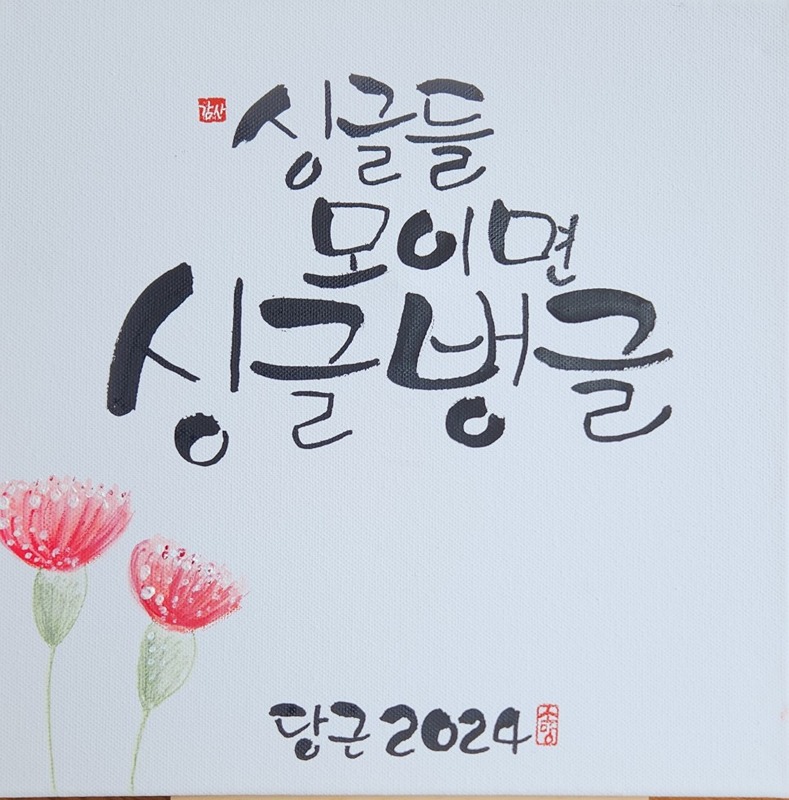 감사
싱글들
모이면
싱글벙글
당근 2024